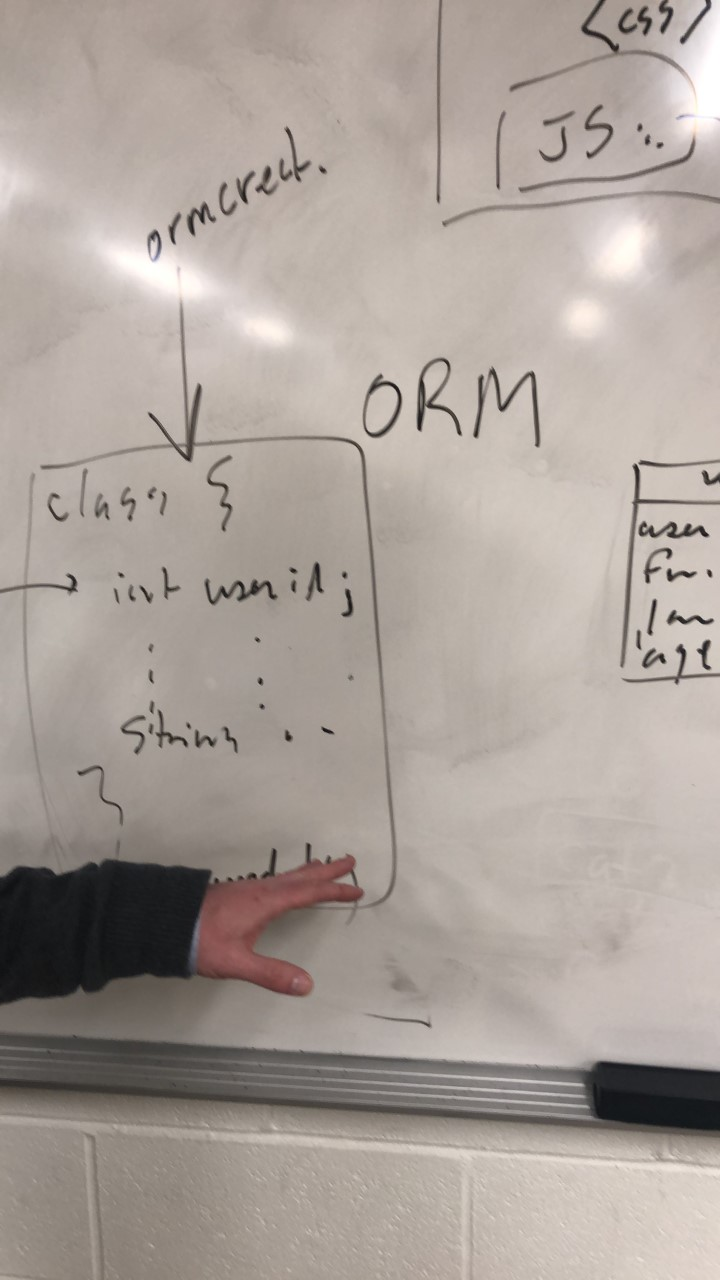 <css>
JS :.
ormcreat.
ORM
class {
int userid;
: : .
String . -
}
user
fn.
ln
age